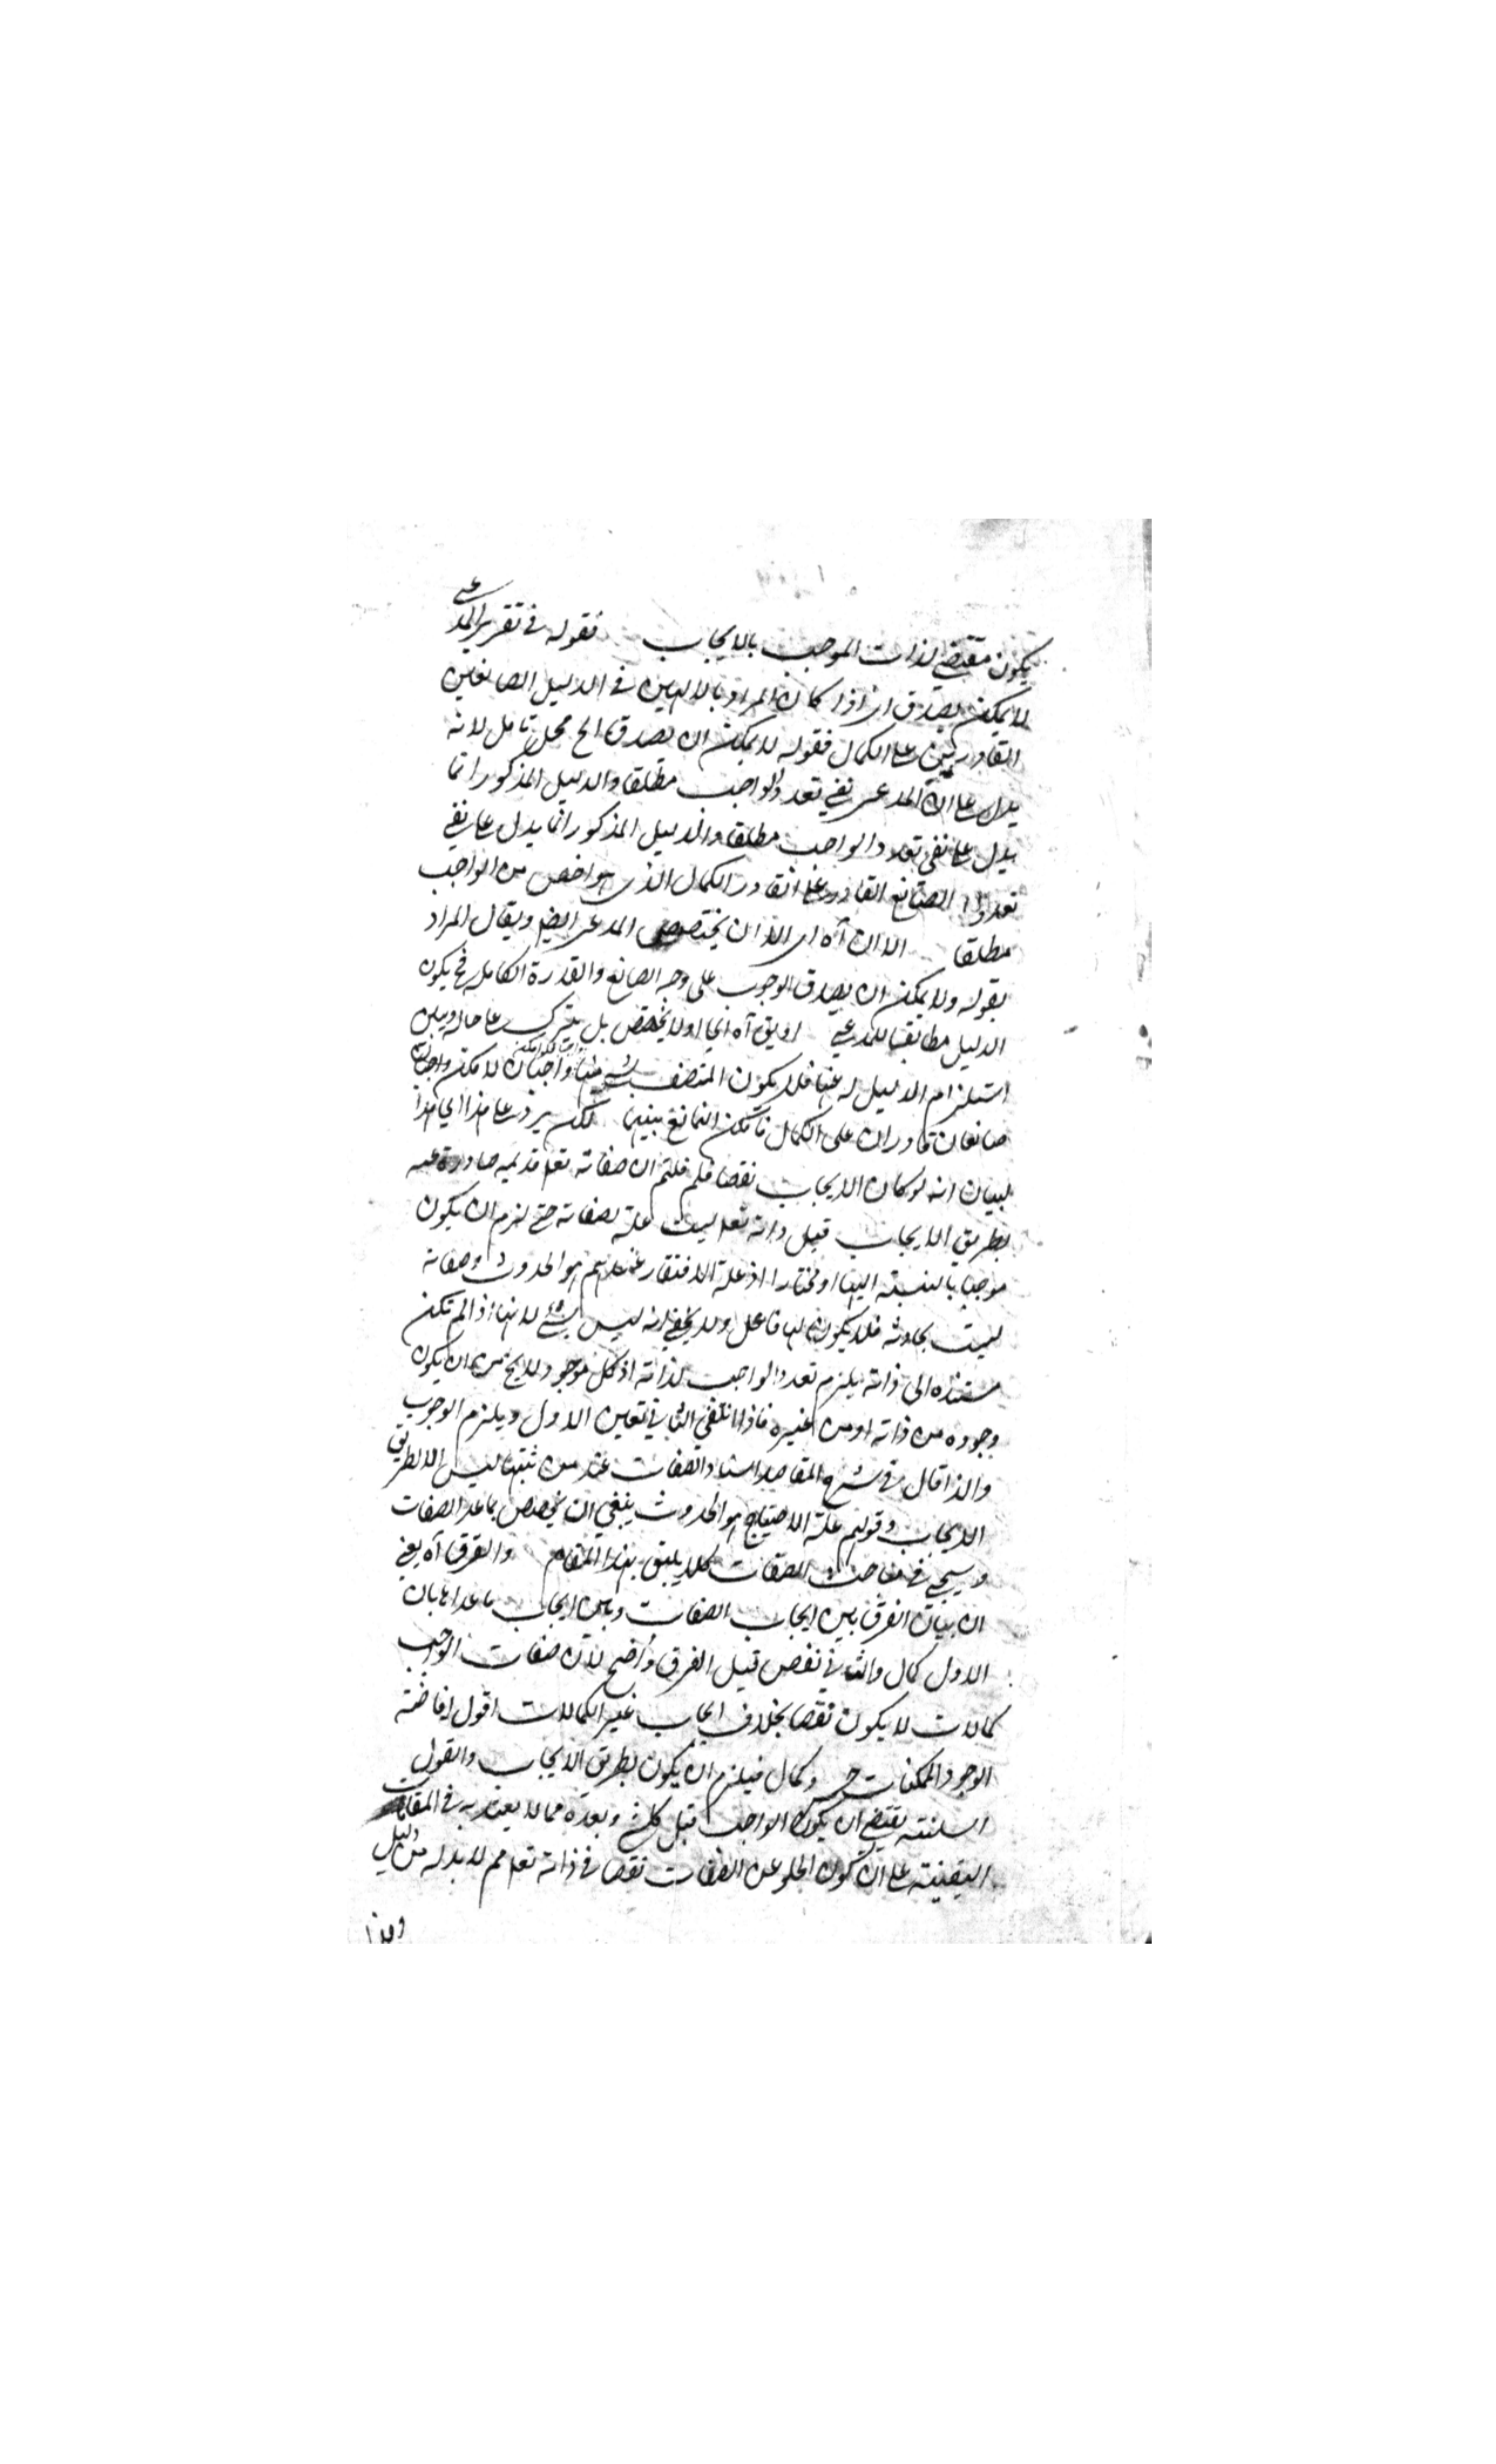 يكون مقتضى لذات الموجب بالايجاب فقوله في تقرير المدعى
لا يمكن يصدق اى اذا كان المراد بالالهين في الدليل الصانعين
القادرين على الكمال فقوله لا يمكن ان يصدق الخ محل تامل لانه
يدل على ان المدعى نفي تعدد الواجب مطلقا والدليل المذكور انما
يدل على نفي تعدد الواجب مطلقا والدليل المذكور انما يدل على نفي
تعدد الصانع القادر على الكمال الذى هو اخص من الواجب
مطلقا الا ان آه اى الا ان يختص المدعى ايضا ويقال المراد
بقوله ولا يمكن ان يصدق الوجوب على وجه الصانع والقدرة الكاملة فح يكون
الدليل مطابقا للمدعى او يق آه اى او لا يختص بل يترك على حاله ويبين
استلزام الدليل له فلا يكون المتصف واجبان لا مكن واجبان
صانعان قادران على الكمال فامكن التمانع بينهما لكن يرد على هذا اى هذا
لبيان انه لو كان الايجاب نقصا فلم قلتم ان صفاته تعالى قديمة صادرة عنه
بطريق الايجاب قيل ذاته تعالى ليست علة لصفاته حتى لزم ان يكون
موجبا بالنسبة اليها او مختارا اذ علة الافتقار عندهم هو الحدوث وصفاته
ليست بحادثة فلا يكون لها فاعل ولا يخفى انه ليس بشئ لانها اذا لم تكن
مستندة الى ذاته يلزم تعدد الواجب لذاته اذ كل موجود لا يخ من ان يكون
وجوده من ذاته او من غيره فاذا انتفى الثاني تعين الاول ويلزم الوجوب
ولذا قال في شرح المقاصد استناد الصفات عند من يثبتها ليس الا بطريق
الايجاب وقولهم علة الاحتياج هو الحدوث ينبغي ان يخصص بما عدا الصفات
وسيجئ في مباحث الصفات كلام يليق بهذا المقام والفرق آه يعنى
ان بيان الفرق بين ايجاب الصفات وبين ايجاب ما عداها بان
الاول كمال والثاني نقص قيل الفرق واضح لان صفات الواجب
كمالات لا يكون نقصا بخلاف ايجاب غير الكمالات اقول افاضة
الوجود الممكنات وكمال فيلزم ان يكون بطريق الايجاب والقول
السنته يقتضى ان يكون الواجب قبل كل شئ وبعده مما لا يعتد به في المقامات
اليقينية على ان كون الخلو عن الصفات نقصا في ذاته تعالى مم لا بد له من دليل
وهذا